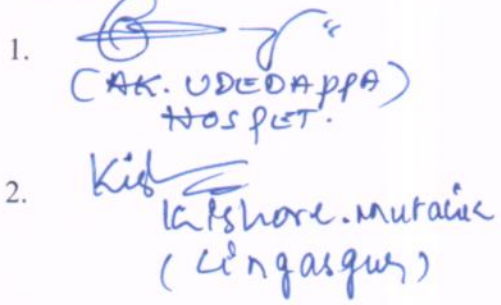 1.
(AK. UDEDAPPA)
HOSPET.
2.
Kishore.Mutalik
(Lingasgur)